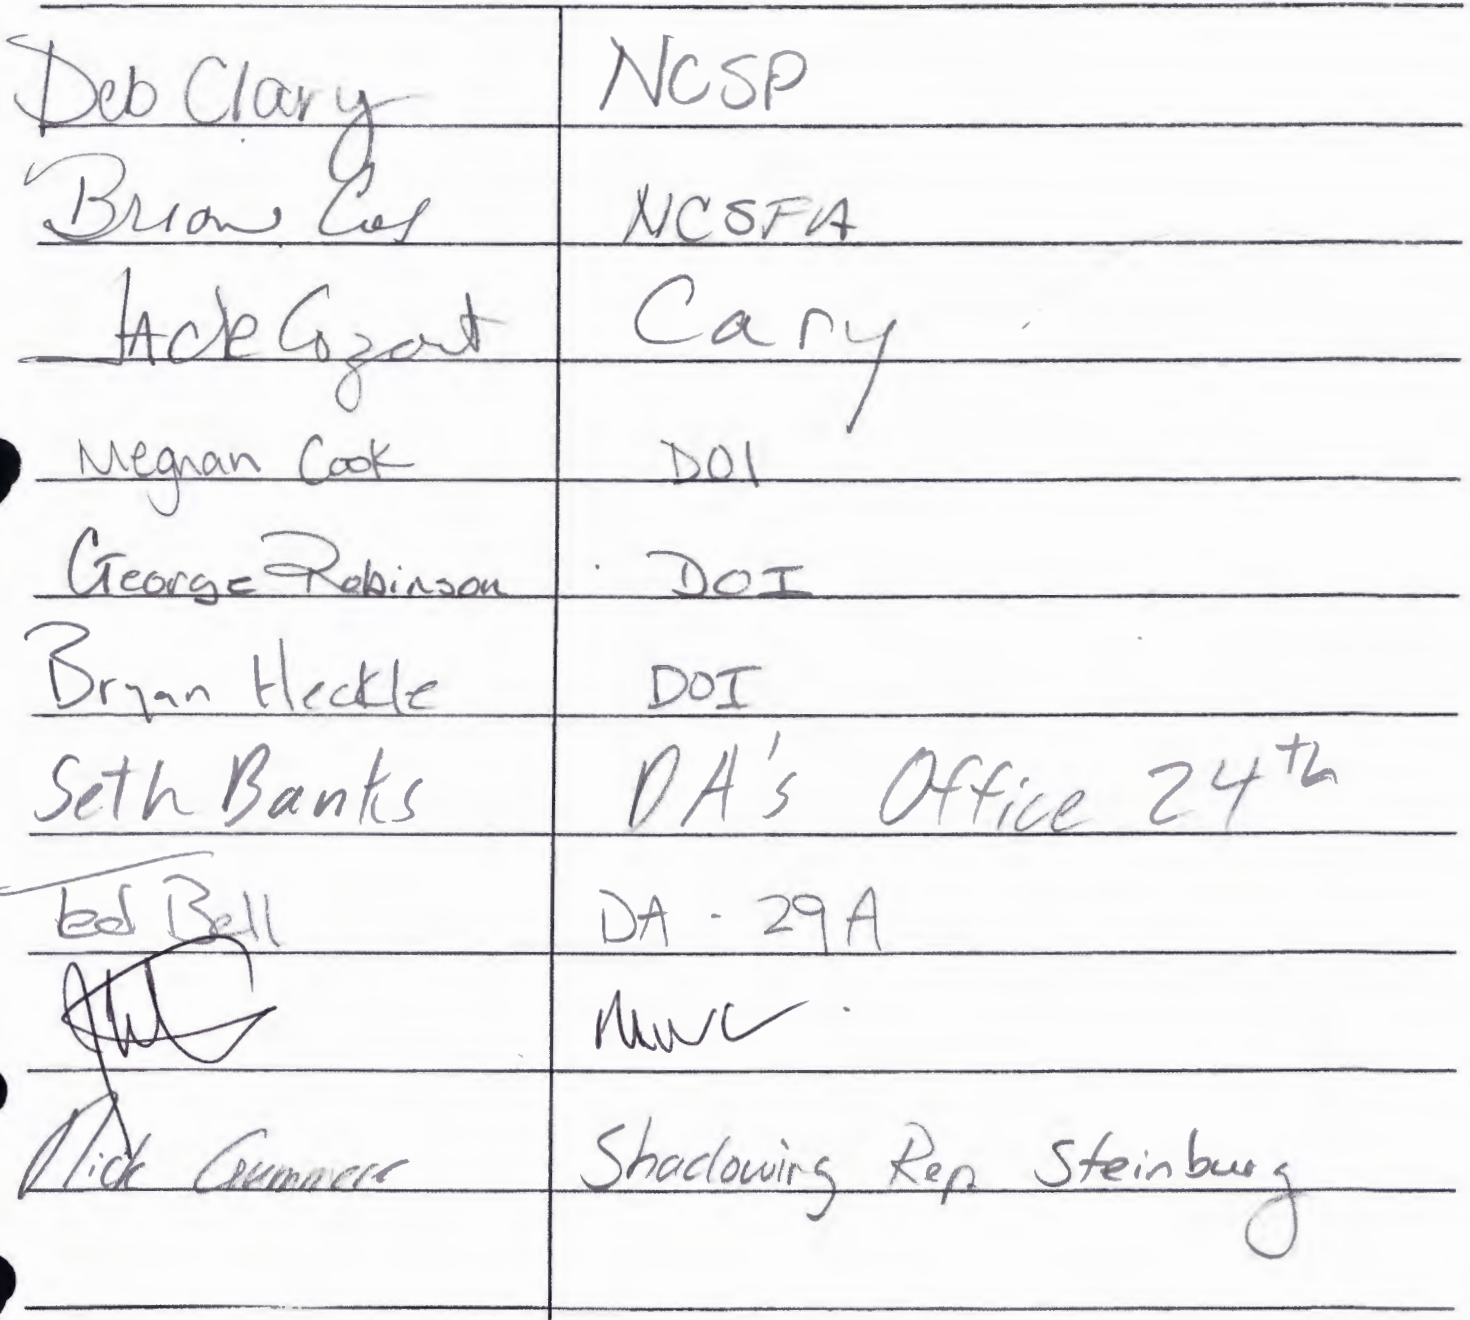 Deb Clary NCSP
Brian NCSFA
Jack Cozart Cary
Meghan Cook DOI
George Robinson DOI
Bryan Heckle DOI
Seth Banks DA's Office 24th
Ted Bell DA - 29A
MWC
Nick Shadowing Rep Steinburg